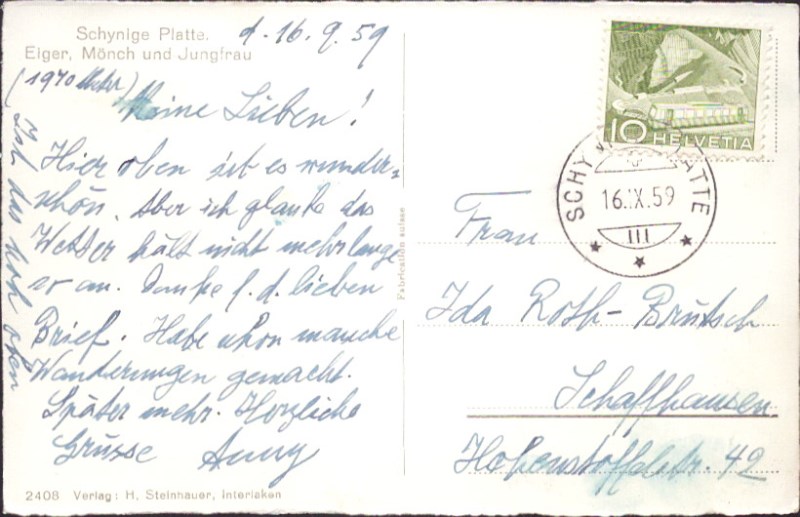 Schynige Platte.
Eiger, Mönch und Jungfrau
d. 16. 9. 59
(1970 Meter)
Meine Lieben!
Hier oben ist es wunder=
schön. Aber ich glaube das
Wetter hält nicht mehr lange
so an. Danke f. d. lieben
Brief. Habe schon manche
Wanderungen gemacht.
Später mehr. Herzliche
Grüsse Anny
2408 Verlag: H. Steinhauer, Interlaken
Fabrication suisse
10 HELVETIA
SCHYNIGE PLATTE
16.IX.59
III
Frau
Ida Roth-Brütsch
Schaffhausen
Hohenstoffelstr. 42